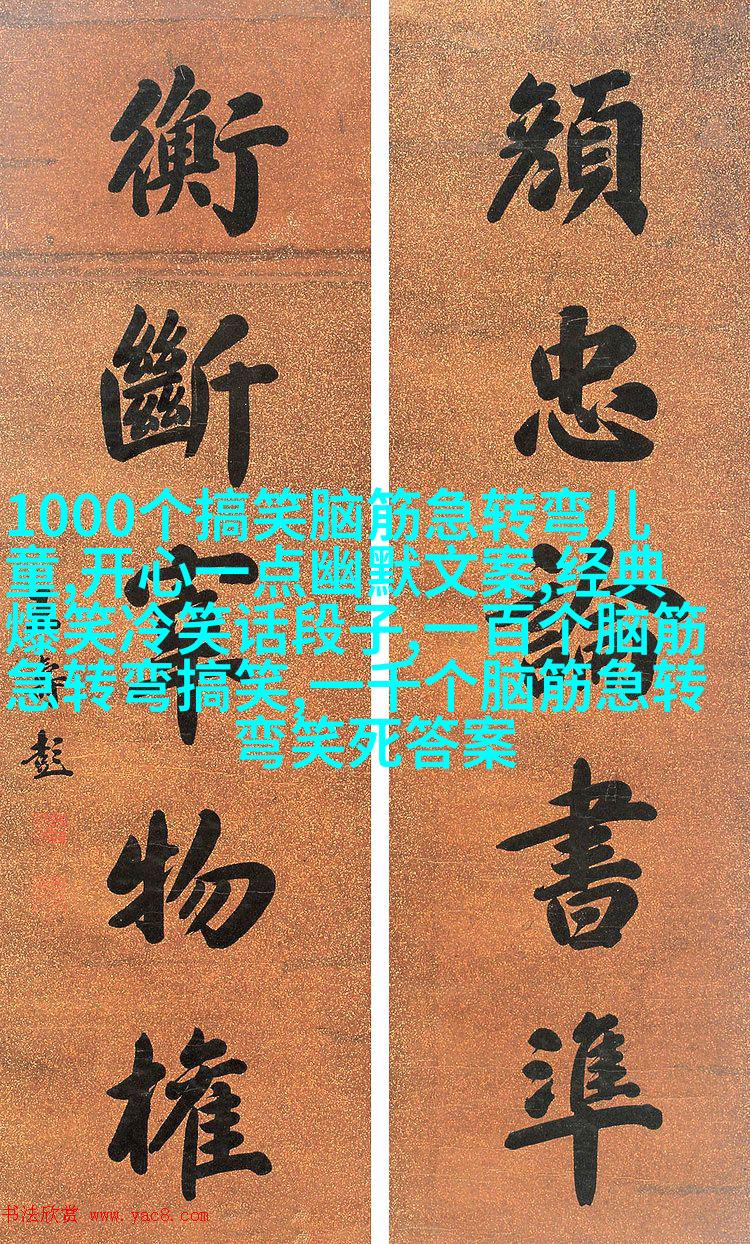 顏忠論書準
衡斷宰物權
彭
1000个搞笑脑筋急转弯儿
童,开心一点幽默文案,经典
爆笑冷笑话段子,一百个脑筋
急转弯搞笑,一千个脑筋急转
弯笑死答案
书法欣赏 www.yac8.com